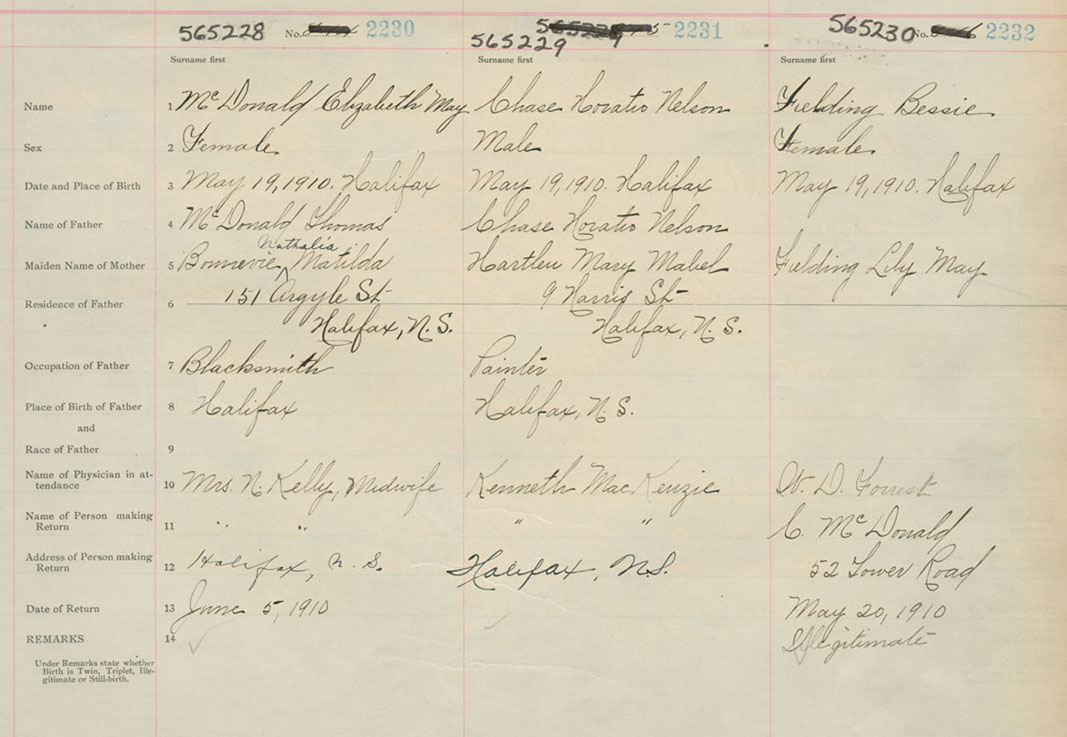 565228 No. 2230 565229 2231 565230 No. 2232
565229
Surname first Surname first Surname first
Name 1 McDonald Elizabeth May Chase Horatio Nelson Fielding Bessie
Sex 2 Female Male Female
Date and Place of Birth 3 May 19, 1910. Halifax May 19, 1910. Halifax May 19, 1910. Halifax
Name of Father 4 McDonald Thomas Chase Horatio Nelson
Nathalia
Maiden Name of Mother 5 Bonnevie Matilda Hartleu Mary Mabel Fielding Lily May
Residence of Father 6 151 Argyle St 9 Harris St
Halifax, N.S. Halifax, N.S.
Occupation of Father 7 Blacksmith Painter
Place of Birth of Father 8 Halifax Halifax, N.S.
and
Race of Father 9
Name of Physician in at-
tendance 10 Mrs. N. Kelly, Midwife Kenneth MacKenzie W. D. Forrest
Name of Person making
Return 11 " " " " C. McDonald
Address of Person making
Return 12 Halifax, N.S. Halifax, N.S. 52 Tower Road
Date of Return 13 June 5, 1910 May 20, 1910
REMARKS 14 Illegitimate
Under Remarks state whether
Birth is Twin, Triplet, Ille-
gitimate or Still-birth.